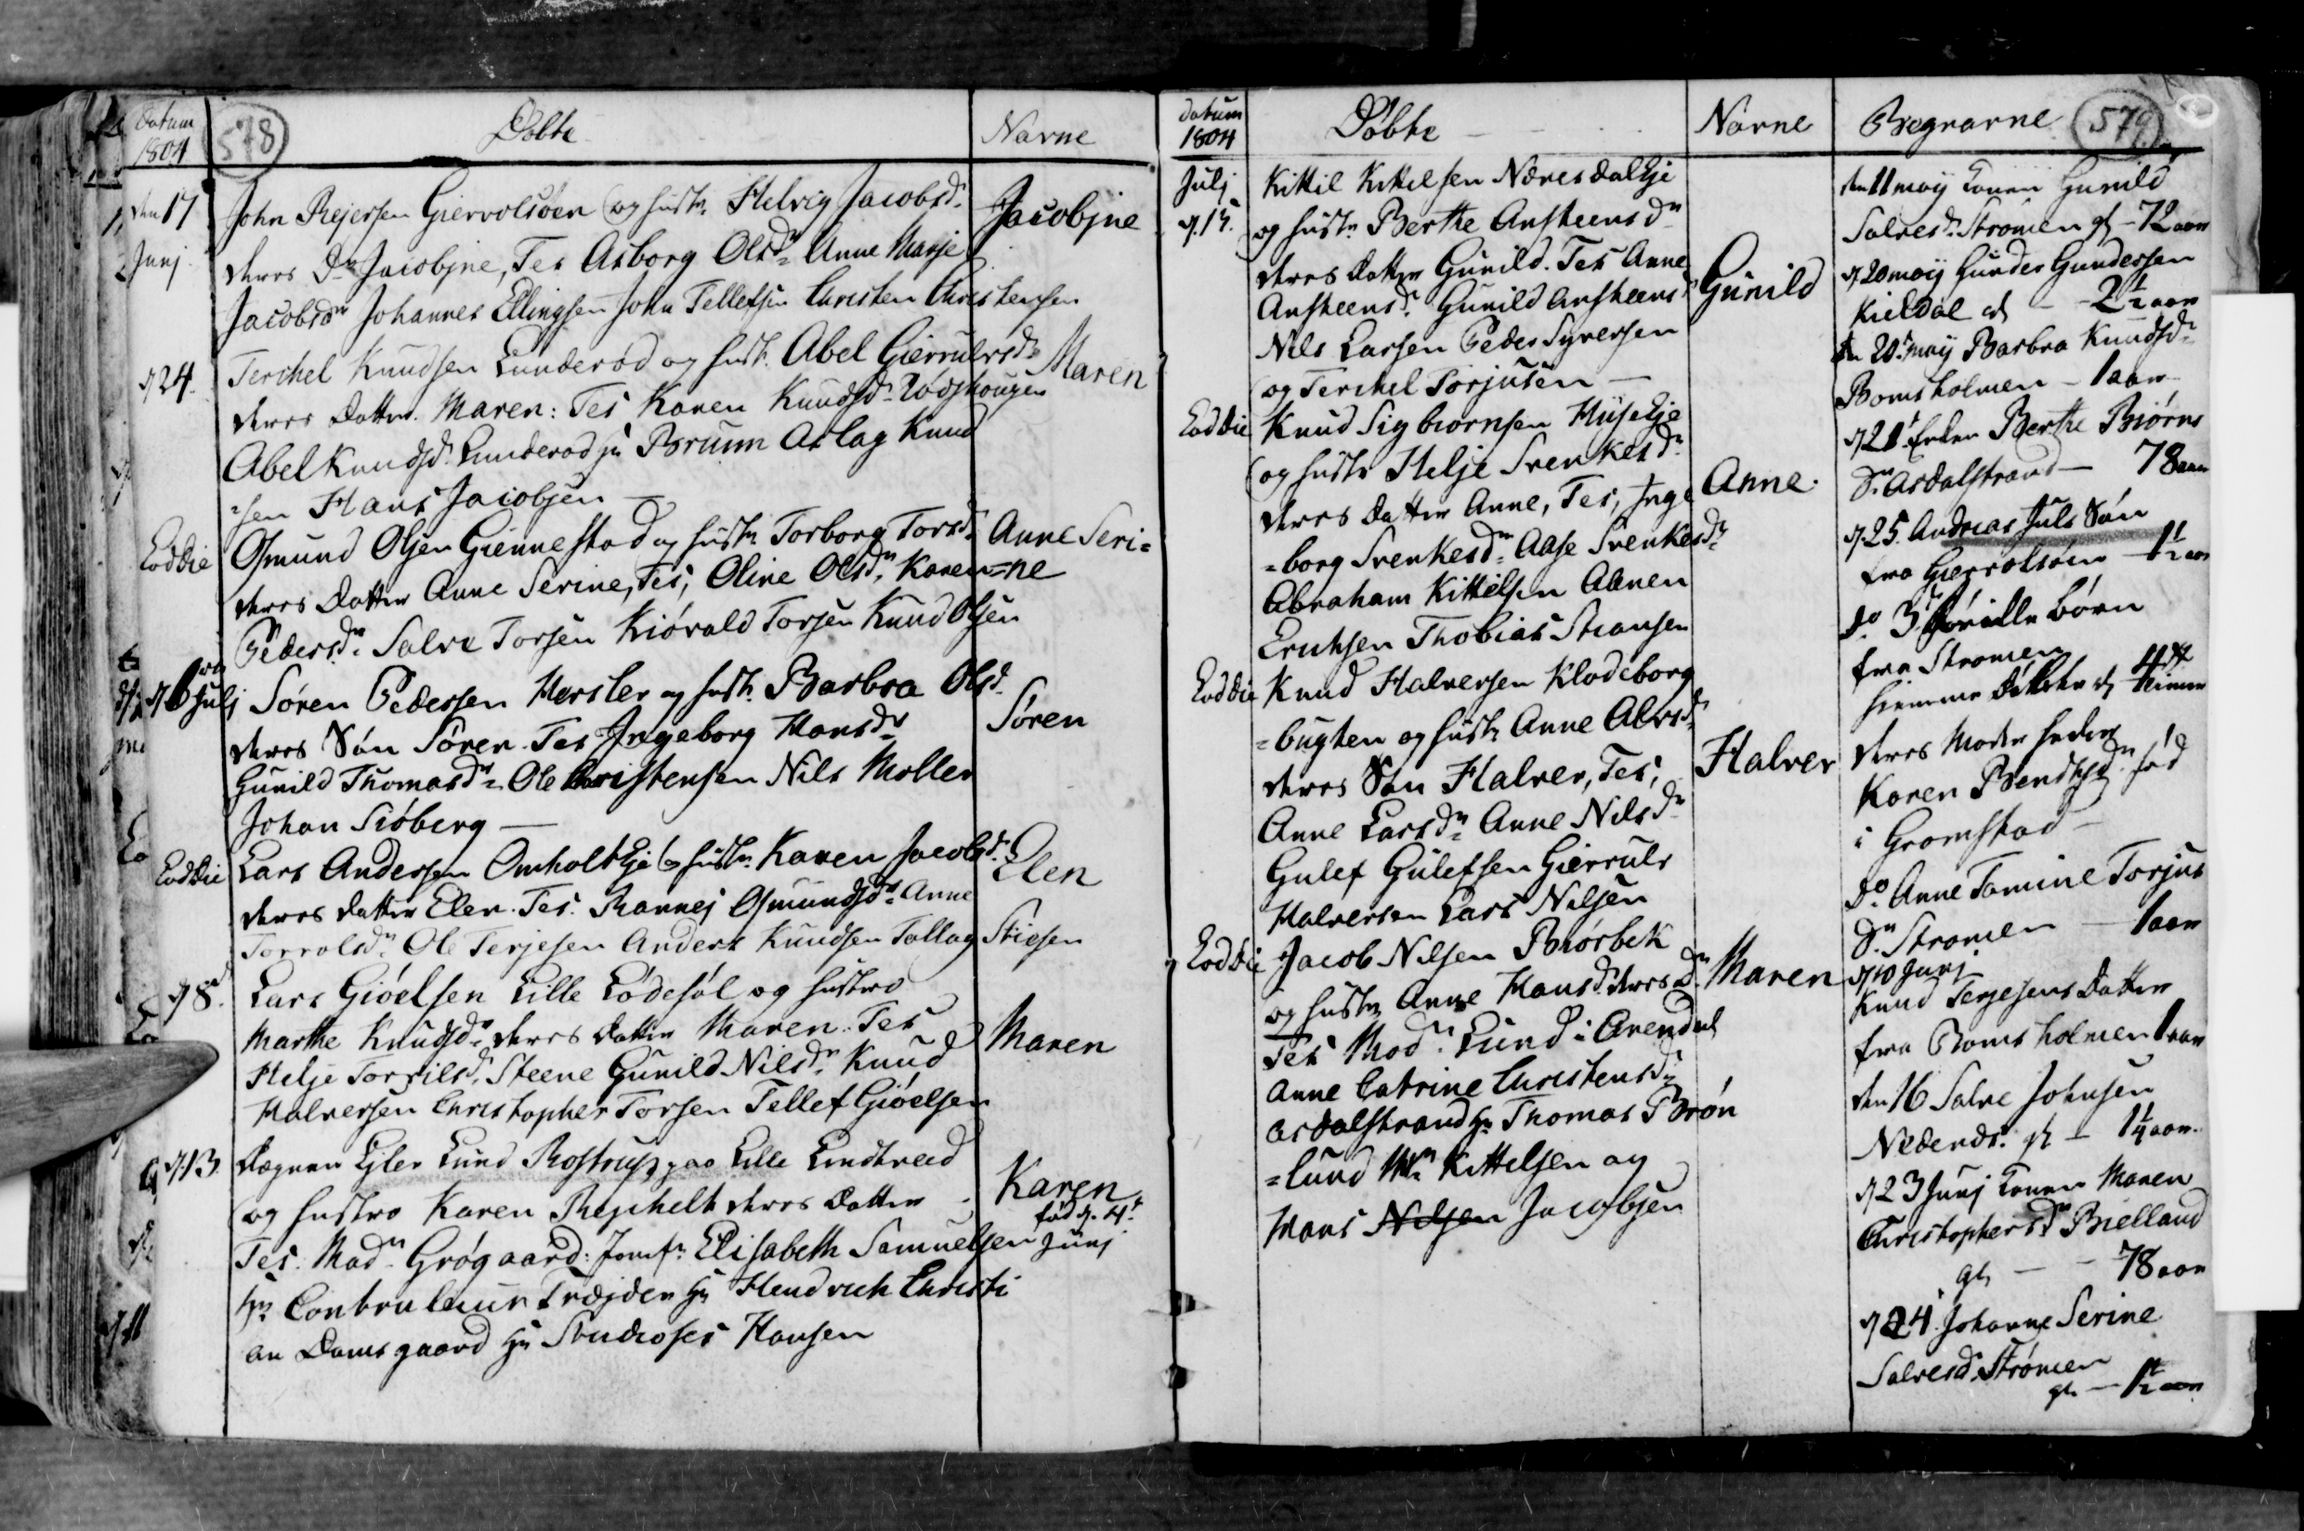 Datum
1804
578
Döbte
Navne
den 17
Junj
John Rejersen Giervolsöen og hustr. Helvig Jacobsd.
deres Dr. Jacobjne, Tes Asborg Olsdr. Anne Marje
Jacobsdr. Johannes Ellingsen John Tellefsen Christen Christensen
Jacobjne
d 24.
Terchel Knudsen Lunderød og hustr. Abel Gierrulvsdr.
deres Datter Maren: Tes Karen Knudsdr. Rödshougen
Abel Knudsdr. Lunderød hr. Brunn Aslag Knud
=sen Hans Jacobsen —
Maren
Eoddie
Osmund Olsen Giennestad og hustr. Torborg Torsdr.
deres Datter Anne Serine, Tes, Oline Olsdr. Karen
Pedersdr. Salve Torsen Kiövald Torsen Knud Olsen
Anne Seri=
=ne
d 1 Julj
Sören Pedersen Hersler og hustr. Barbra Olsd.
deres Sön Sören. Tes Jngeborg Hansdr.
Gunild Thomasdr. Ole Christensen Nils Moller
Johan Siöberg —
Sören
Eoddie
Lars Andersen Omholt Eje og hustr. Karen Jacobsd.
deres datter Elen. Tes. Rannej Osmundsdr. Anne
Torvolsdr. Ole Terjesen Anders Knudsen Tallag Stiesen
Elen
d 8.
Lars Giöelsen Lille Lödesöl og hustro
Marthe Knudsdr. deres datter Maren. Tes
Helje Torrilsd. Steene Gunild Nilsdr. Knud
Halversen Christopher Torsen Tellef Giöelsen
Maren
d 13
Degnen Ejler Lund Rostrup paa Lille Lindtved
og hustro Karen Rejchelt deres datter
Tes. Madn. Grögaard. Jomfr. Elisabeth Samuelsen
hr. Contrulleur Trejder hr. Hendrich Christi
an Damsgaard hr. Studioses Hansen
Karen
fød d. 4.
Junj
Datum
1804
Döbte
Navne
Begravne
579
Julj
d. 15.
Kittil Kittelsen Næresdal Eje
og hustr. Berthe Ansteensdr.
deres datter Gunild. Tes Anne
Ansteensd. Gunild Ansteensd.
Nils Larsen Peder Syversen
og Terchel Torjusen —
Gunild
Eoddie
Knud Sigbiornsen Huse Eje
og hustr. Helje Svenkesdr.
deres datter Anne, Tes, Jnge
=borg Svenkesdr. Aase Svenkesdr.
Abraham Kittelsen Abnen
Erichsen Thobias Stiansen
Anne.
Eoddie
Knud Halversen Klodeborg
=bugten og hustr. Anne Alvsd.
deres Sön Halver, Tes,
Anne Larsdr. Anne Nilsdr.
Gulef Gulefsen Gierruls
Halversen Lars Nilsen
Halver
Eoddie
Jacob Nilsen Biorbek
og hustr. Anne Hansd. deres Dr.
Tes Mad. Lund i Arendal
Anne Catrine Christensdr.
Asdalstrand hr. Thomas Brön
=lund Kittelsen og
Hans Nilsen Jacobsen
Maren
den 11 maij Konen Gunild
Salvesd. Stromen gl — 72 aar
d 20 maij Gunder Gundersen
Kieldal gl — 2½ aar
den 20. maij Barbra Knudsdr.
Bomsholmen — 1 aar
d 21. Enken Berthe Biörns
dr. Asdalstrand — 78 aar
d 25. Andreas Juls Sön
fra Gierrolsöen — 1½ aar
do 3 börn
fra Stromen
hiemme döbte gl 4
deres Moder heder
Karen Bendtsdr. fød
i Gromstad —
do Anne Tomine Torjus
dr. Stromen — 1 aar
d 10 Junj
Knud Terjesens Datter
fra Bomsholmen 1 aar
den 16 Salve Johnsen
Nedenes. gl — 1¼ aar.
d 23 Junj Konen Maren
Christophersdr. Bielland
gl — 78 aar
d 24. Johanne Serine
Salvesd. Strömen
gl. — 1½ aar